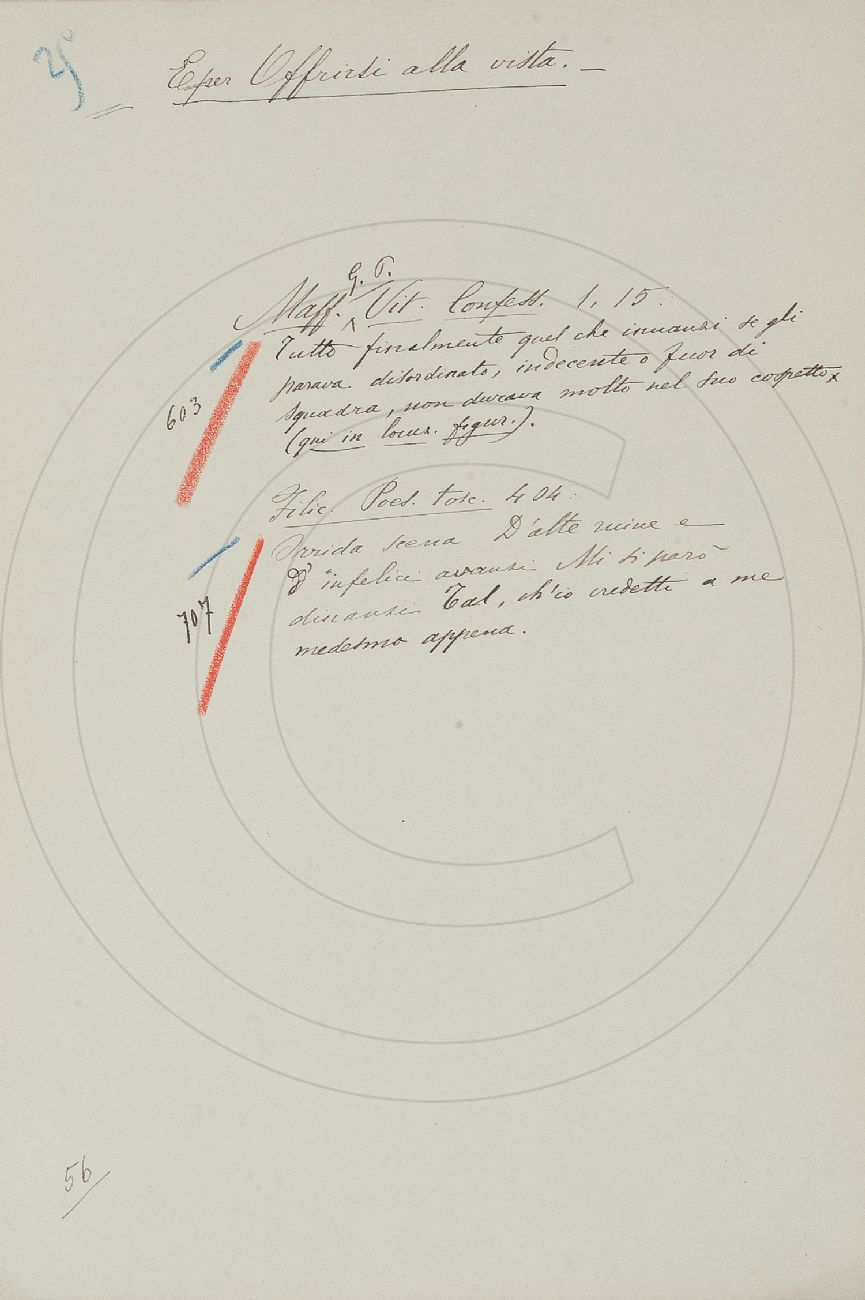 25
E per Offrirsi alla vista. —
G. P.
Maff. Vit. Confess. 1, 15:
Tutto finalmente quel che innanzi se gli
parava disordinato, indecente o fuor di
squadra, non durava molto nel suo cospetto x
(qui in locuz. figur.).
603
Filic. Poes. tosc. 404:
Orrida scena D'alte ruine e
D' infelici avanzi Mi si parò
dinanzi Tal, ch'io credetti a me
medesmo appena.
707
56